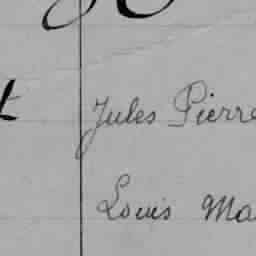 t Jules Pierre
Louis Ma